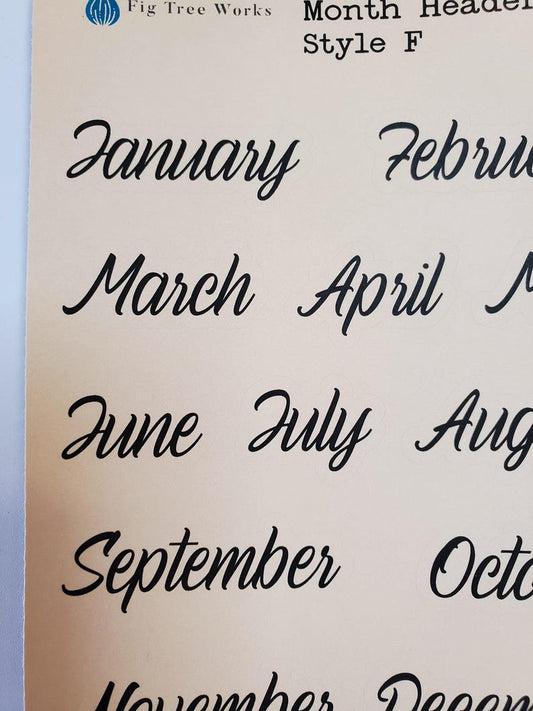 Fig Tree Works
Month Header
Style F
January Febru
March April M
June July Aug
September Octo
November Decem